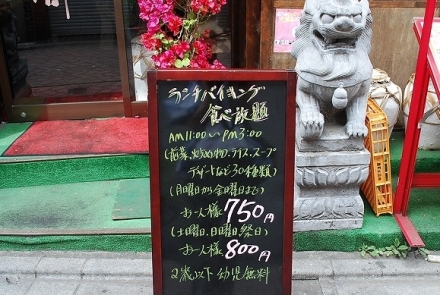 ランチバイキング
食べ放題
AM11:00〜PM3:00
(前菜、炒め物、ライス、スープ
デザートなど30種類)
(月曜日から金曜日まで)
お一人様750円
(土曜日、日曜日祭日)
お一人様800円
2歳以下幼児無料